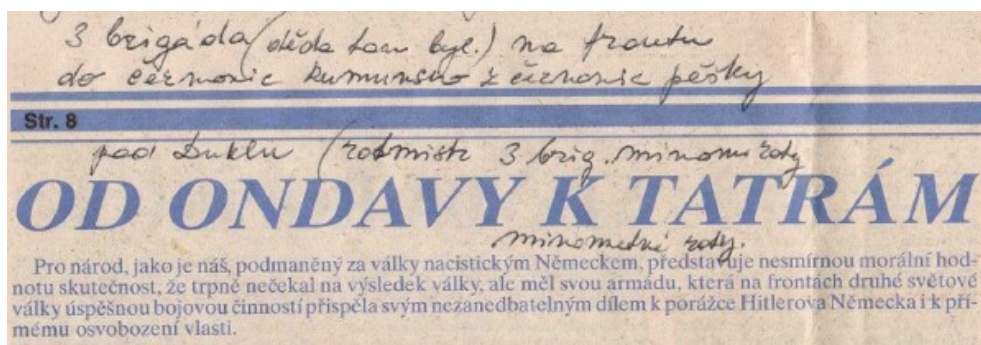 3 brigáda (děda tam byl.) na frontu
do čérnovic Rumunsko z černovic pěšky
Str. 8
pod Duklu (rotmistr 3 brig. minomu roty
OD ONDAVY K TATRÁM
minometné roty.
Pro národ, jako je náš, podmaněný za války nacistickým Německem, představuje nesmírnou morální hod-
notu skutečnost, že trpně nečekal na výsledek války, ale měl svou armádu, která na frontách druhé světové
války úspěšnou bojovou činností přispěla svým nezanedbatelným dílem k porážce Hitlerova Německa i k pří-
mému osvobození vlasti.